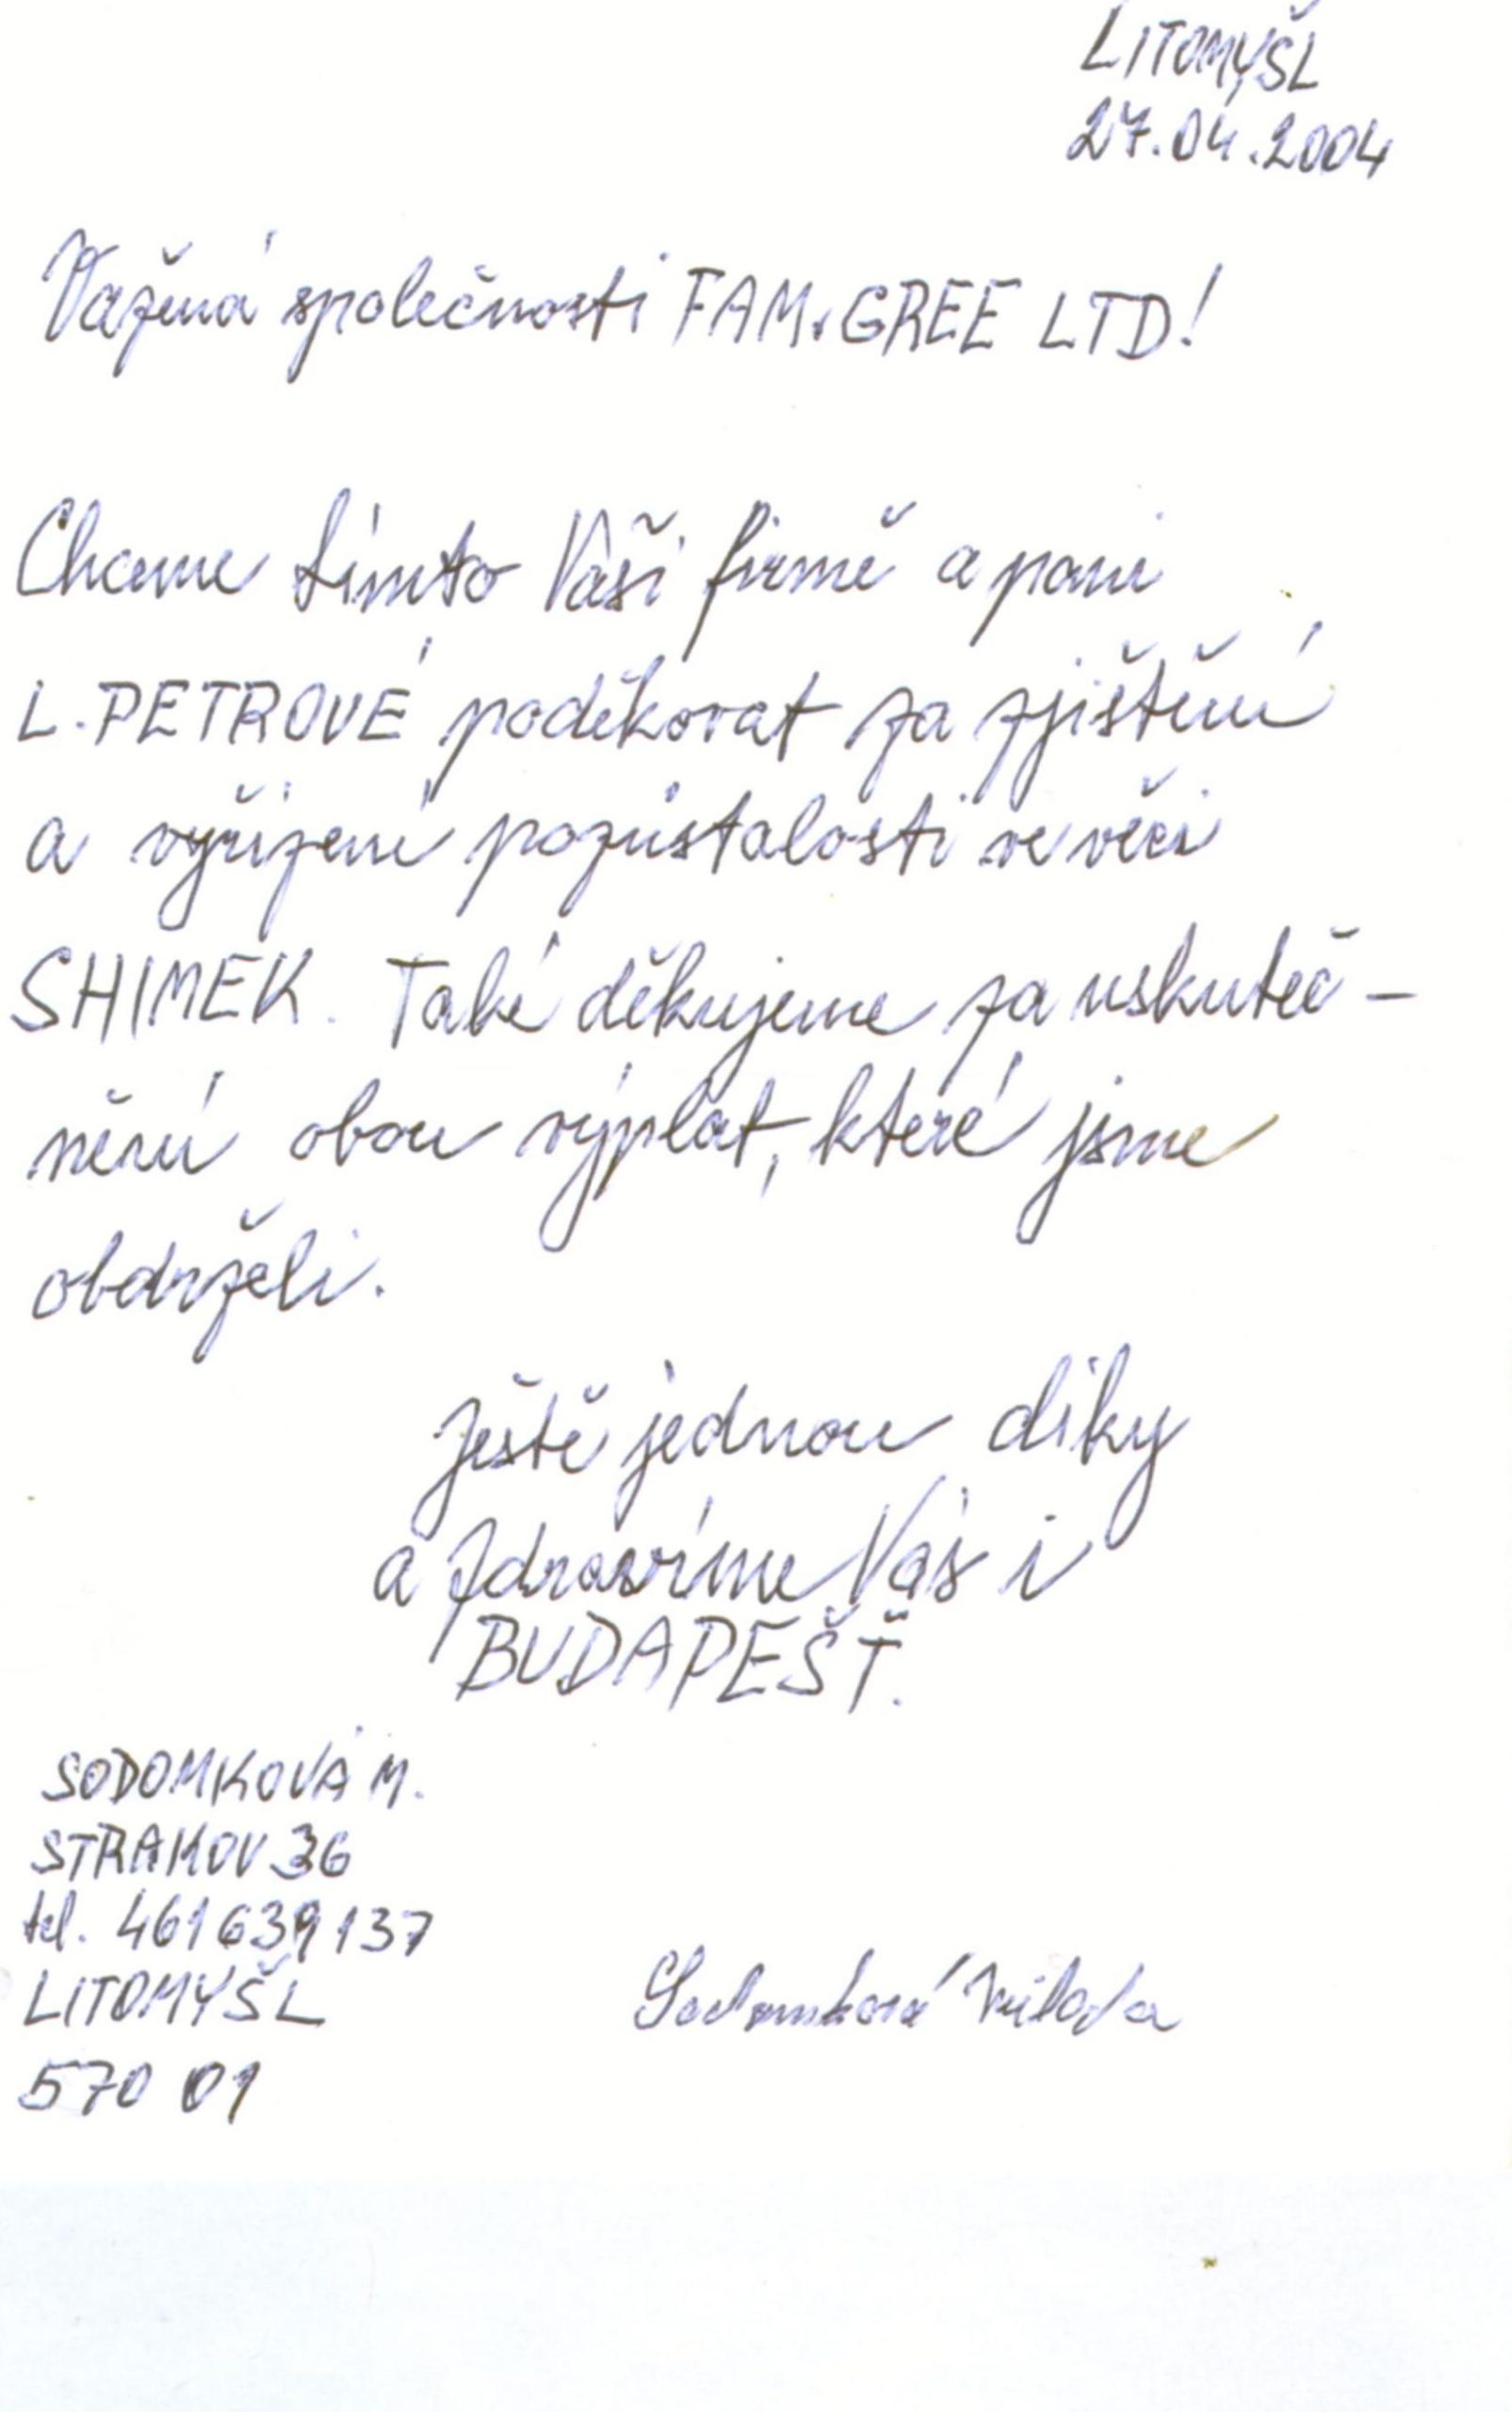 LITOMYŠL
27.04.2004
Vážená společnosti FAM.GREE LTD!
Chceme tímto Vaší firmě a paní
L. PETROVÉ poděkovat za zjištění
a vyřízení pozůstalosti ve věci
SHIMEK. Také děkujeme za uskuteč-
nění obou výplat, které jsme
obdrželi.
Ještě jednou díky
a zdravíme Vás i
BUDAPEŠŤ.
SODOMKOVÁ M.
STRAKOV 36
tel. 461639137
LITOMYŠL
570 01
Sodomková Milota